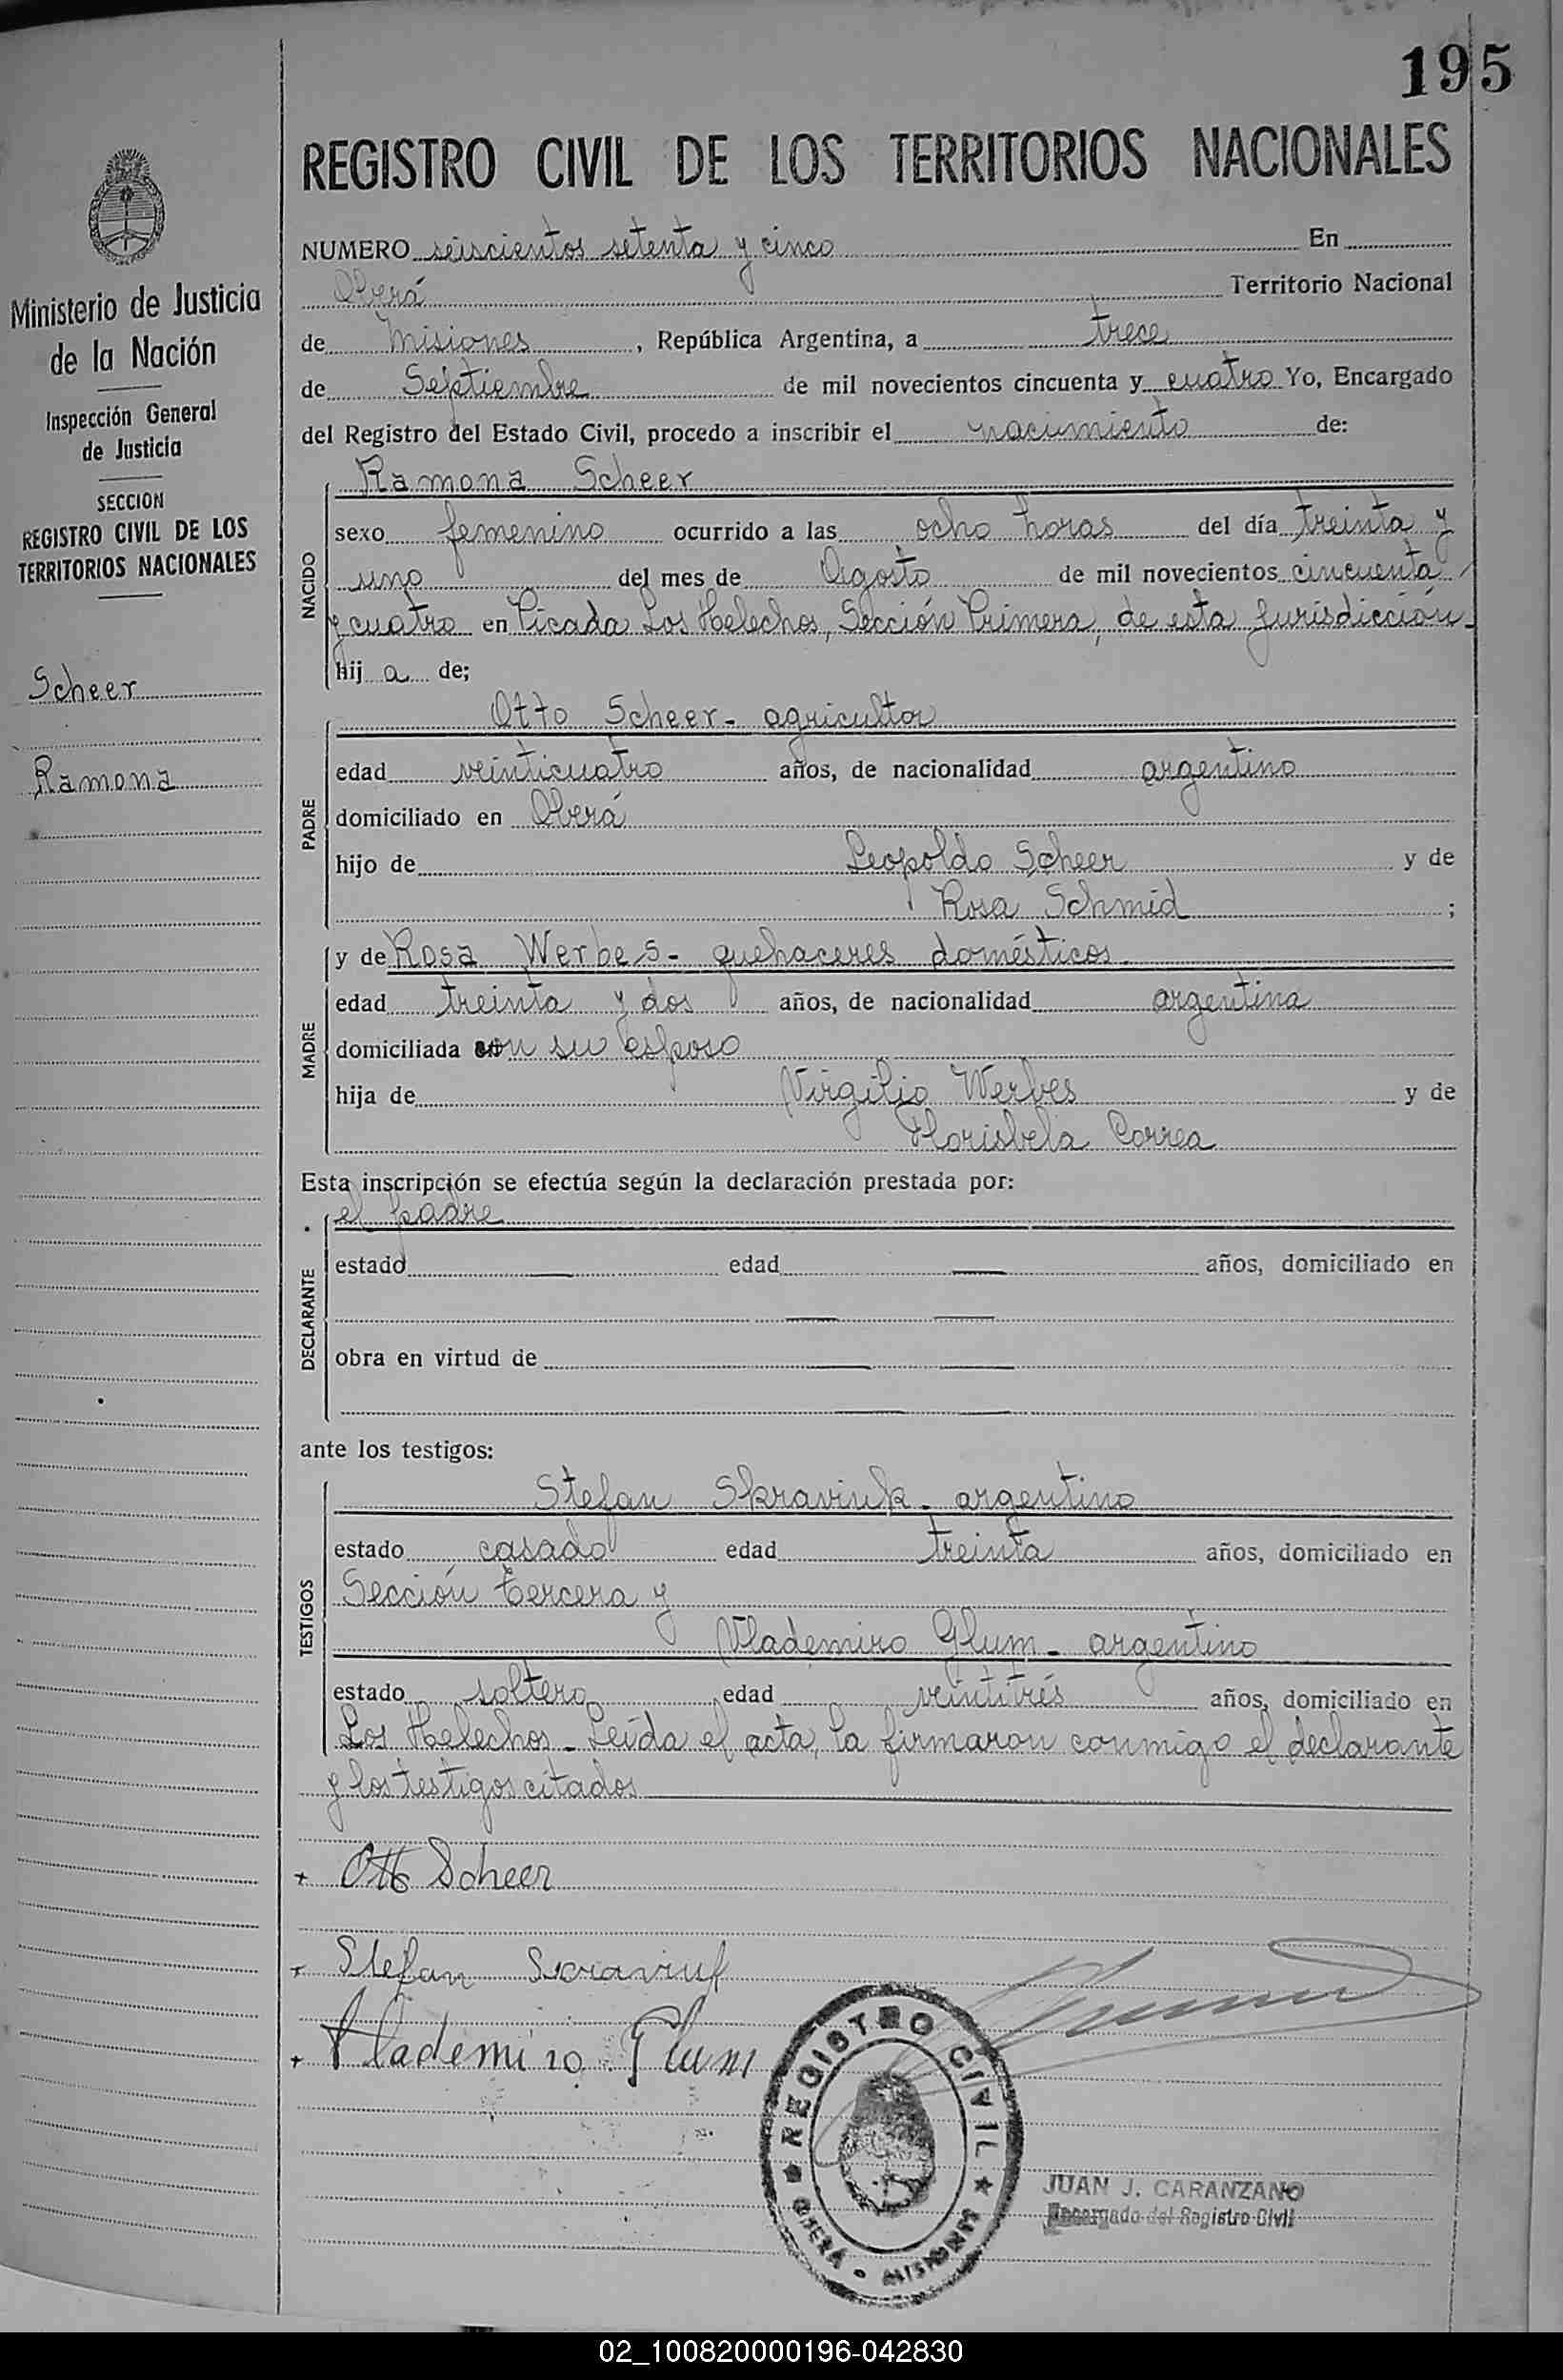 195
REGISTRO CIVIL DE LOS TERRITORIOS NACIONALES
Ministerio de Justicia
de la Nación
Inspección General
de Justicia
SECCION
REGISTRO CIVIL DE LOS
TERRITORIOS NACIONALES
Scheer
Ramona
NUMERO seiscientos setenta y cinco En
Oberá Territorio Nacional
de Misiones, República Argentina, a trece
de Septiembre de mil novecientos cincuenta y cuatro Yo, Encargado
del Registro del Estado Civil, procedo a inscribir el nacimiento de:
NACIDO
Ramona Scheer
sexo femenino ocurrido a las ocho horas del día treinta y
uno del mes de Agosto de mil novecientos cincuenta
y cuatro en Picada Los Helechos, Sección Primera, de esta Jurisdicción-
hija de;
PADRE
Otto Scheer- agricultor
edad veinticuatro años, de nacionalidad argentino
domiciliado en Oberá
hijo de Leopoldo Scheer y de
Rosa Schmid ;
MADRE
y de Rosa Werbes- quehaceres domésticos.
edad treinta y dos años, de nacionalidad argentina
domiciliada con su esposo
hija de Virgilio Werbes y de
Florisbela Correa
Esta inscripción se efectúa según la declaración prestada por:
DECLARANTE
el padre
estado — edad — años, domiciliado en
— —
obra en virtud de — —
— —
ante los testigos:
TESTIGOS
Stefan Skraviuk- argentino
estado casado edad treinta años, domiciliado en
Sección tercera y
Vlademiro Glum- argentino
estado soltero edad veintitrés años, domiciliado en
Los Helechos- Leída el acta, la firmaron conmigo el declarante
y los testigos citados
+ Otto Scheer
+ Stefan
+ Vlademiro Glum
REGISTRO CIVIL
OBERÁ • MISIONES
JUAN J. CARANZANO
Encargado del Registro Civil
02_100820000196-042830